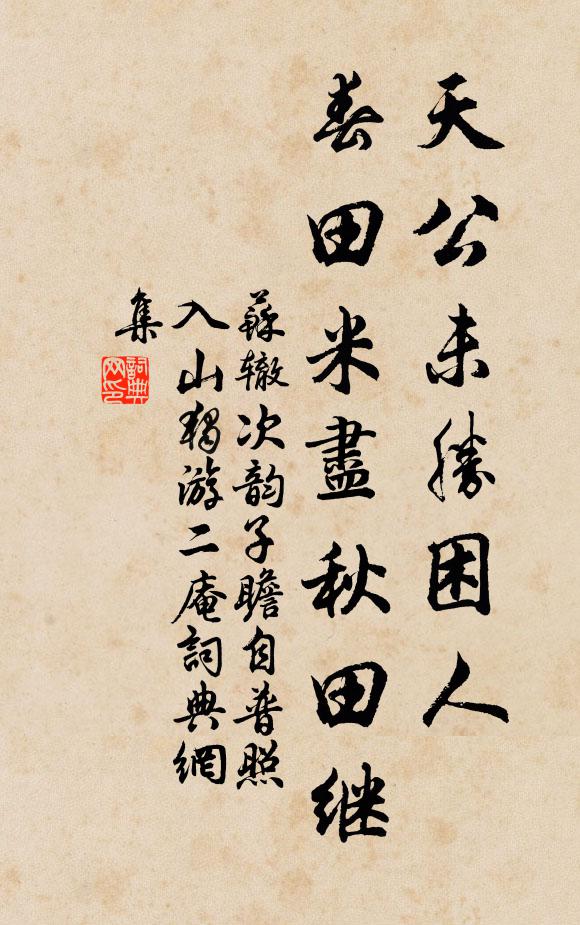 天公未勝困人
春田米盡秋田继
蘇辙次韵子瞻自普照
入山独游二庵詞典網
集
詞典网印